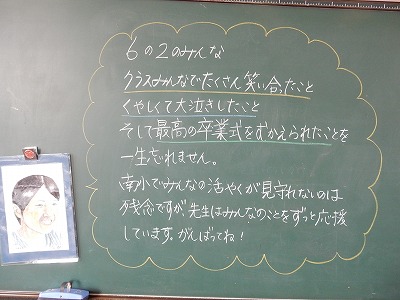 6の2のみんな
クラスみんなでたくさん笑い合ったこと
くやしくて大泣きしたこと
そして最高の卒業式をむかえられたことを
一生忘れません。
南小でみんなの活やくが見守れないのは
残念ですが先生はみんなのことをずっと応援
しています。がんばってね!